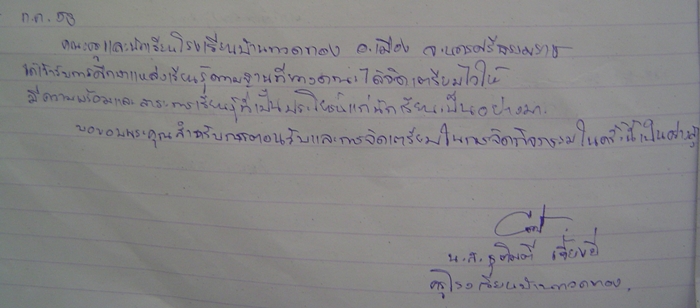 ก.ค. 53
คณะครูและนักเรียนโรงเรียนบ้านทวดทอง อ.เมือง จ.นครศรีธรรมราช
ได้เข้ารับการศึกษาแหล่งเรียนรู้ตามฐานที่ทางคณะได้จัดเตรียมไว้ให้
มีความพร้อมและสาระการเรียนรู้ที่เป็นประโยชน์แก่นักเรียนเป็นอย่างมาก
ขอขอบพระคุณสำหรับการต้อนรับและการจัดเตรียมในการจัดกิจกรรมในครั้งนี้เป็นอย่าง
น.ส.
ครูโรงเรียนบ้านทวดทอง